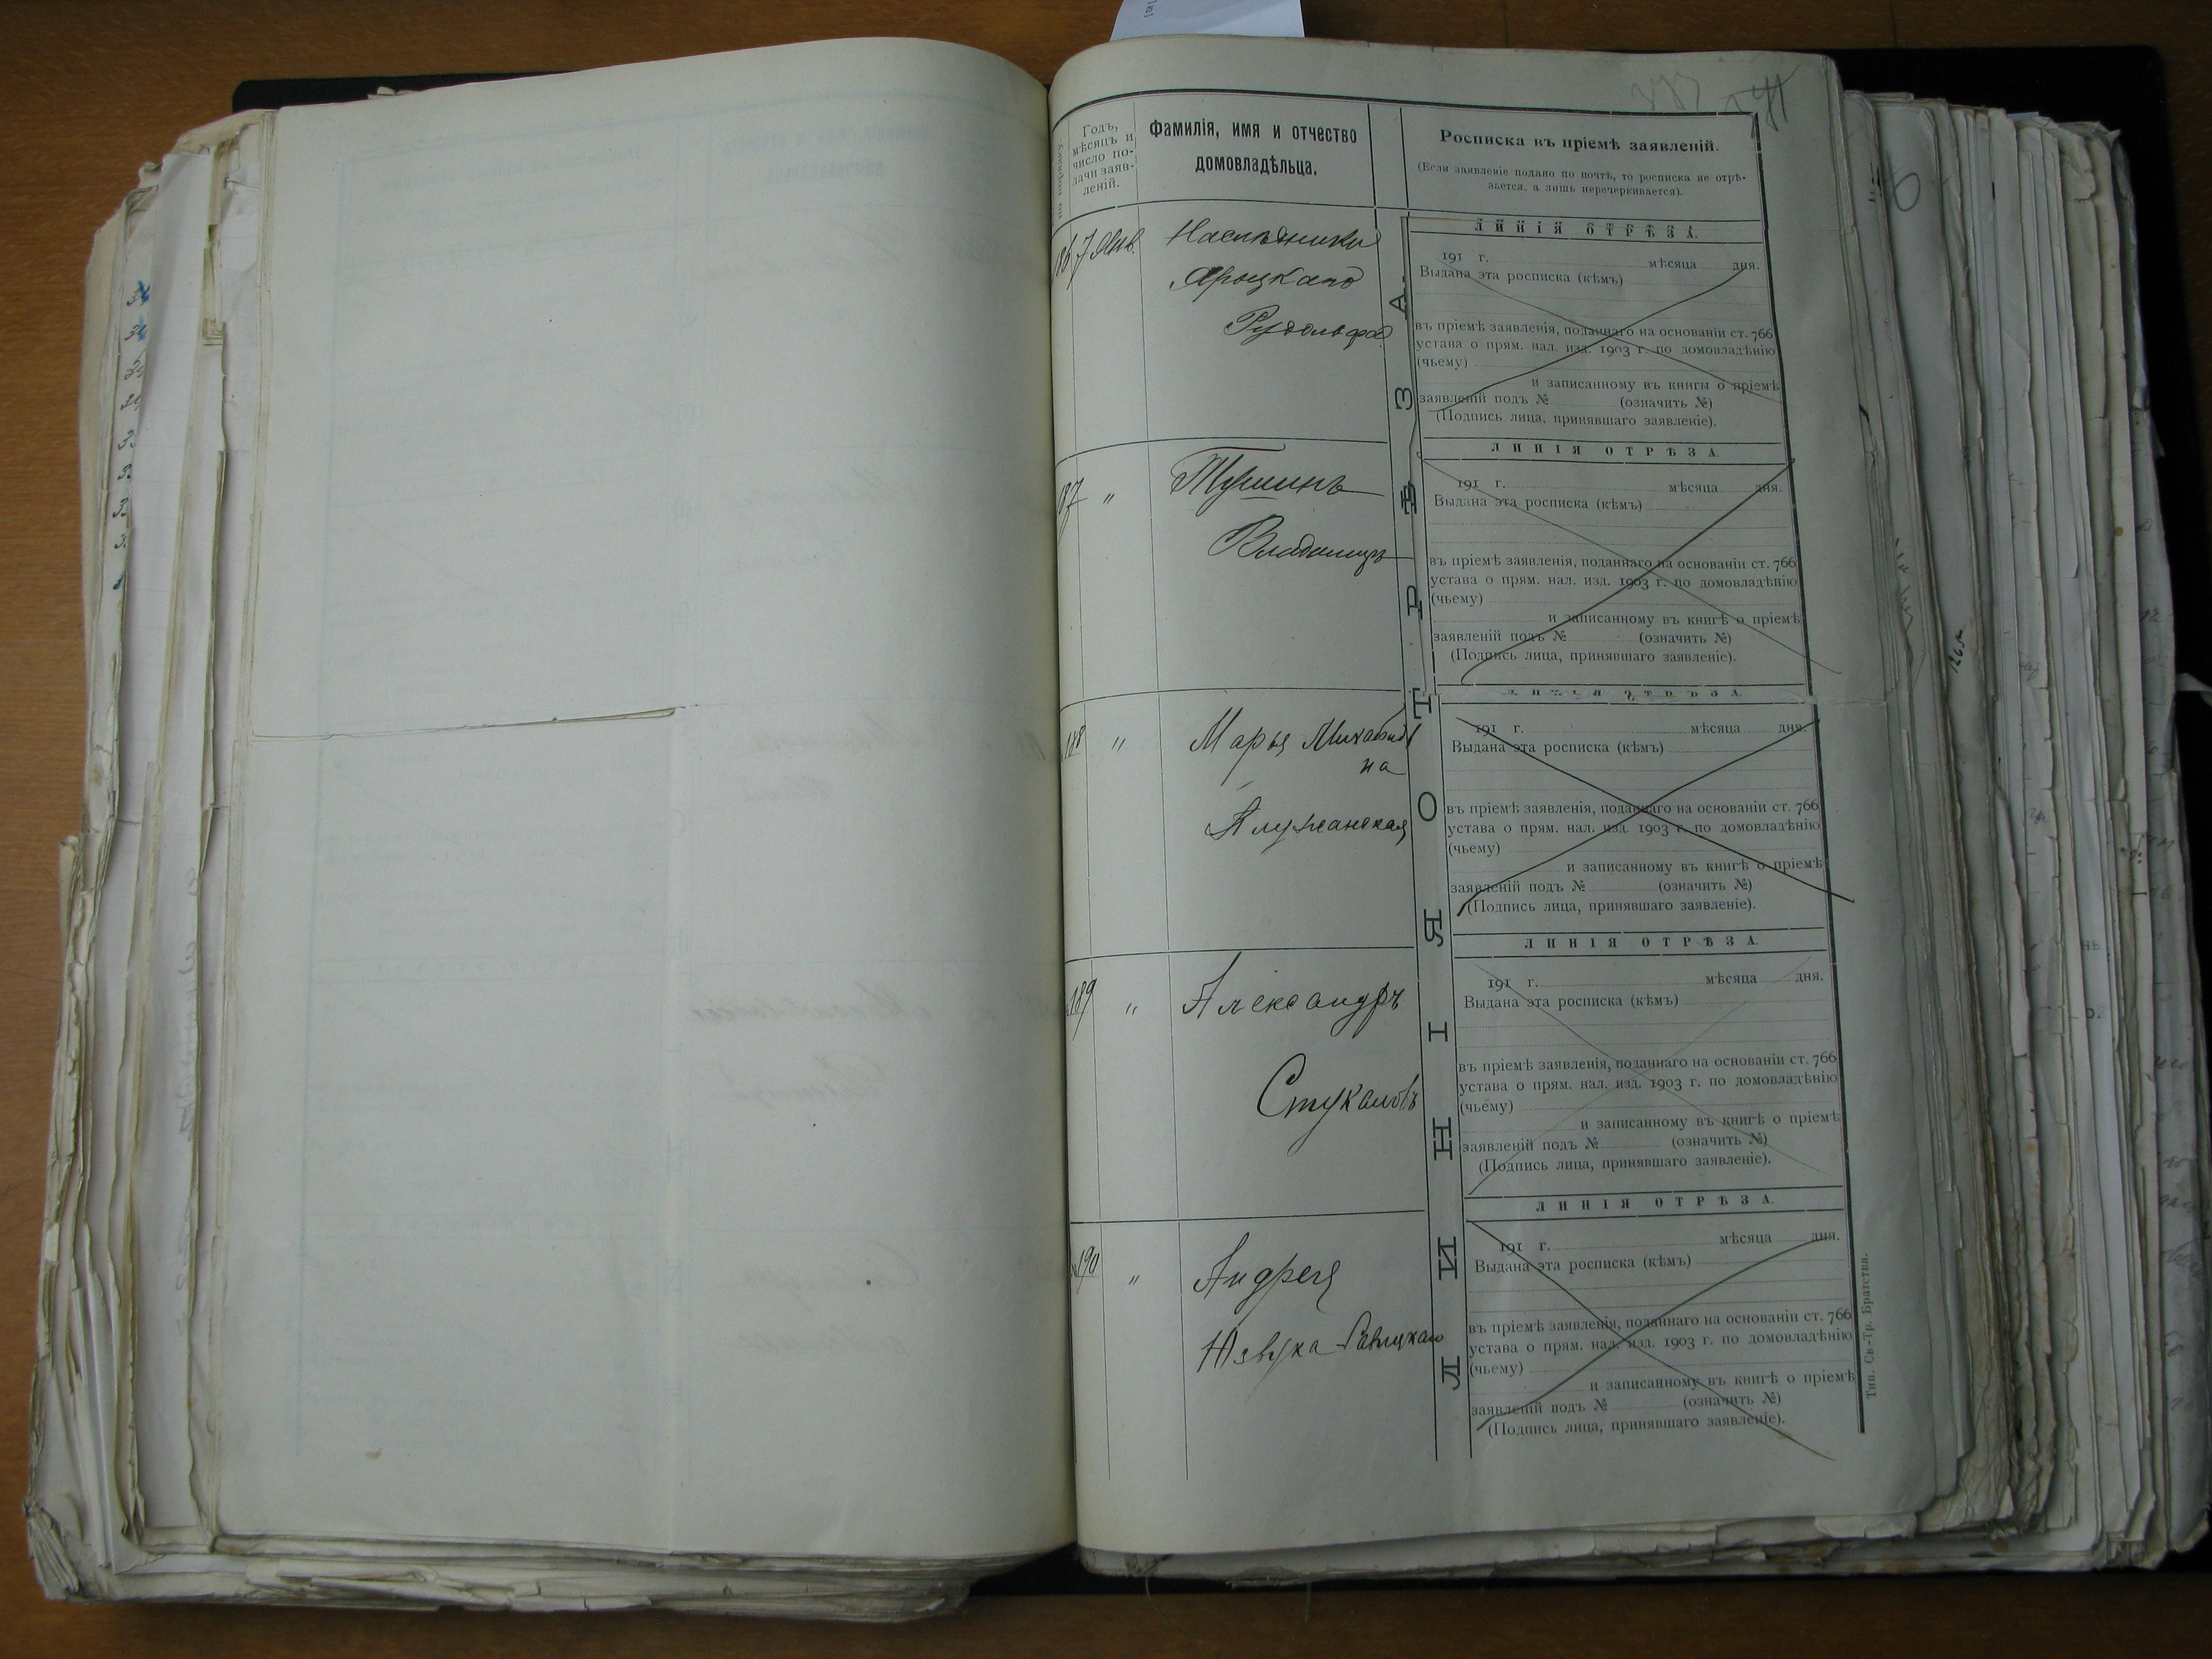 Годъ,
мѣсяцъ и
число по-
дачи заяв-
леній.
Фамилія, имя и отчество
домовладѣльца.
Росписка въ пріемѣ заявленій.
(Если заявленіе подано по почтѣ, то росписка не отрѣ-
зается, а лишь перечеркивается).
ЛИНІЯ ОТРѢЗА.
186 7 Янв. Наслѣдники
Яроцкаго
Рудольфа
ЛИНІЯ ОТРѢЗА.
191 г. мѣсяца дня.
Выдана эта росписка (кѣмъ)
въ пріемѣ заявленія, поданнаго на основаніи ст. 766
устава о прям. нал. изд. 1903 г. по домовладѣнію
(чьему)
и записанному въ книгы о пріемѣ
заявленій подъ № (означить №)
(Подпись лица, принявшаго заявленіе).
187 " 
Владимиръ
ЛИНІЯ ОТРѢЗА.
191 г. мѣсяца дня.
Выдана эта росписка (кѣмъ)
въ пріемѣ заявленія, поданнаго на основаніи ст. 766
устава о прям. нал. изд. 1903 г. по домовладѣнію
(чьему)
и записанному въ книгѣ о пріемѣ
заявленій подъ № (означить №)
(Подпись лица, принявшаго заявленіе).
188 " Марья Михайлов
на
ЛИНІЯ ОТРѢЗА.
191 г. мѣсяца дня.
Выдана эта росписка (кѣмъ)
въ пріемѣ заявленія, поданнаго на основаніи ст. 766
устава о прям. нал. изд. 1903 г. по домовладѣнію
(чьему)
и записанному въ книгѣ о пріемѣ
заявленій подъ № (означить №)
(Подпись лица, принявшаго заявленіе).
189 " Александръ
Стукаловъ
ЛИНІЯ ОТРѢЗА.
191 г. мѣсяца дня.
Выдана эта росписка (кѣмъ)
въ пріемѣ заявленія, поданнаго на основаніи ст. 766
устава о прям. нал. изд. 1903 г. по домовладѣнію
(чьему)
и записанному въ книгѣ о пріемѣ
заявленій подъ № (означить №)
(Подпись лица, принявшаго заявленіе).
190 " Андрея
ЛИНІЯ ОТРѢЗА.
191 г. мѣсяца дня.
Выдана эта росписка (кѣмъ)
въ пріемѣ заявленія, поданнаго на основаніи ст. 766
устава о прям. нал. изд. 1903 г. по домовладѣнію
(чьему)
и записанному въ книгѣ о пріемѣ
заявленій подъ № (означить №)
(Подпись лица, принявшаго заявленіе).
Тип. Св.-Тр. Братства.
1265